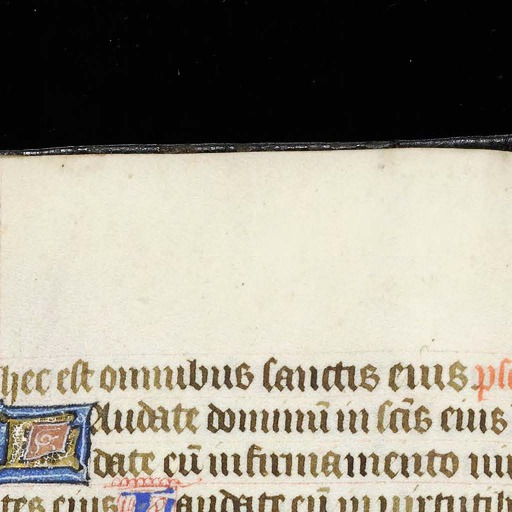 hec est omnibus sanctis eius ps
Laudate dominū in scīs eius
date eū in firmamento
tes eius Laudate eū in uirtutib